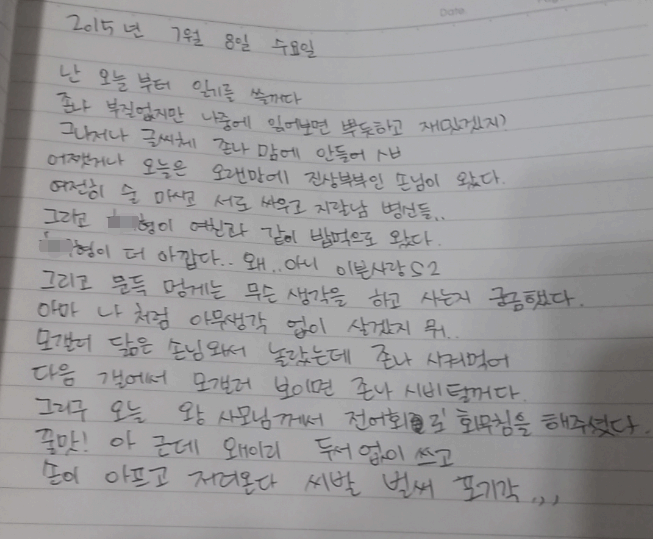 Date.
2015년 7월 8일 수요일
난 오늘 부터 일기를 쓸꺼다
존나 부질없지만 나중에 읽어보면 뿌듯하고 재밌겠지?
그나저나 글씨체 존나 맘에 안들어 ㅅㅂ
어쨌거나 오늘은 오랜만에 진상부부인 손님이 왔다.
여전히 술 마시고 서로 싸우고 지랄남 병신들..
그라고 형이 여친과 같이 밥먹으로 왔다.
형이 더 아깝다.. 왜..아니 이분사랑S2
그리고 문득 멍게는 무슨 생각을 하고 사는지 궁금했다.
아마 나 처럼 아무생각 없이 살겠지 뭐..
모갤러 닮은 손님와서 놀랐는데 존나 시켜먹어
다음 갤에서 모갤러 보이면 존나 시비털꺼다.
그리구 오늘 왕 사모님께서 전어회로 회무침을 해주셨다.
꿀맛! 아 근데 왜이리 두서 없이 쓰고
손이 아프고 저려온다 씨발 벌써 포기각,,,